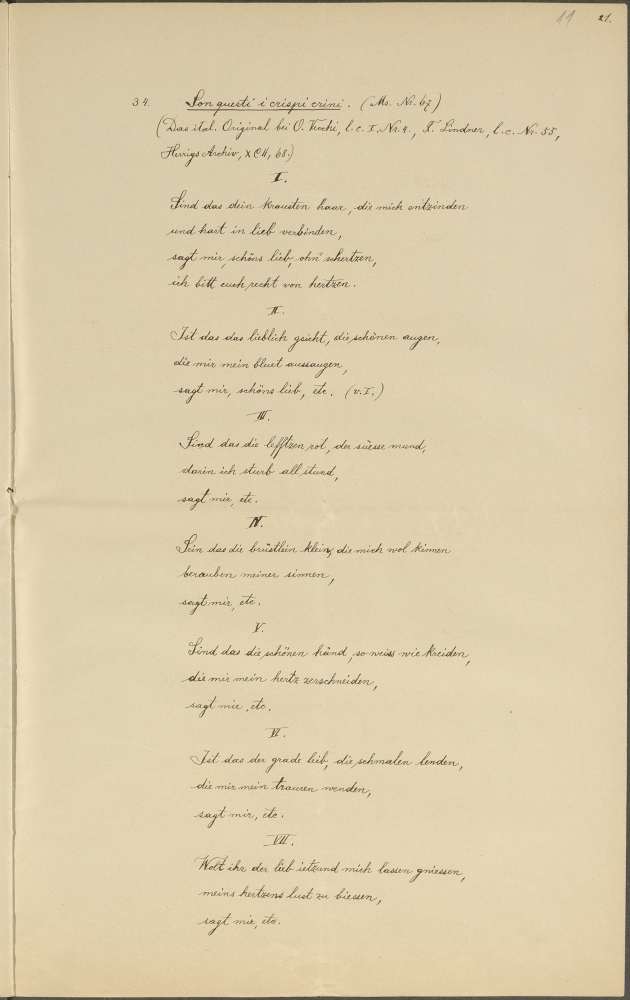 11 21.
34. Son questi i crispi crini. (Ms. Nr. 67)
(Das ital. Original bei O. Vecchi, l.c. I. Nr. 4., F. Lindner, l.c. Nr. 55,
Herrigs Archiv, XCII, 68.)
I.
Sind das dein krausten haar, die mich entzinden
und hart in lieb verbinden,
sagt mir, schöns lieb, ohn' schertzen,
ich bitt euch, recht von hertzen.
II.
Ist das das lieblich gsicht, die schönen augen,
die mir mein bluet aussaugen,
sagt mir, schöns lieb, etc. (v. I.)
III.
Sind das die lefftzen rot, der süesse mund,
darin ich sturb all stund,
sagt mir, etc.
IV.
Sein das die brüstlein klein, die mich wol kinnen
berauben meiner sinnen,
sagt mir, etc.
V.
Sind das die schönen händ, so weiss wie kreiden,
die mir mein hertz zerschneiden,
sagt mir, etc.
VI.
Ist das der grade leib, die schmalen lenden,
die mir mein trauren wenden,
sagt mir, etc.
VII.
Wolt ihr der lieb ietzund mich lassen gniessen,
meins hertzens lust zu biessen,
sagt mir, etc.